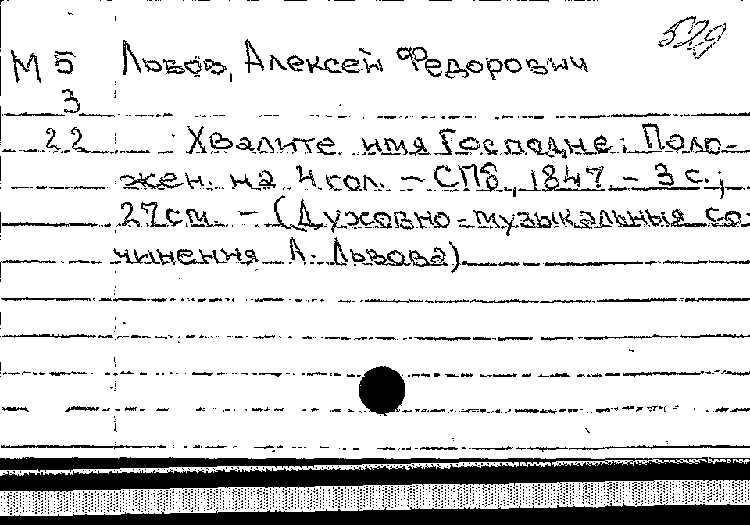 529
М 5 Львов, Алексей Федорович
3
22 Хвалите имя Господне: Поло-
жен. на 4 гол. – СПб., 1847. – 3 с.;
27 см. – (Духовно-музыкальныя со-
чинения А. Львова).